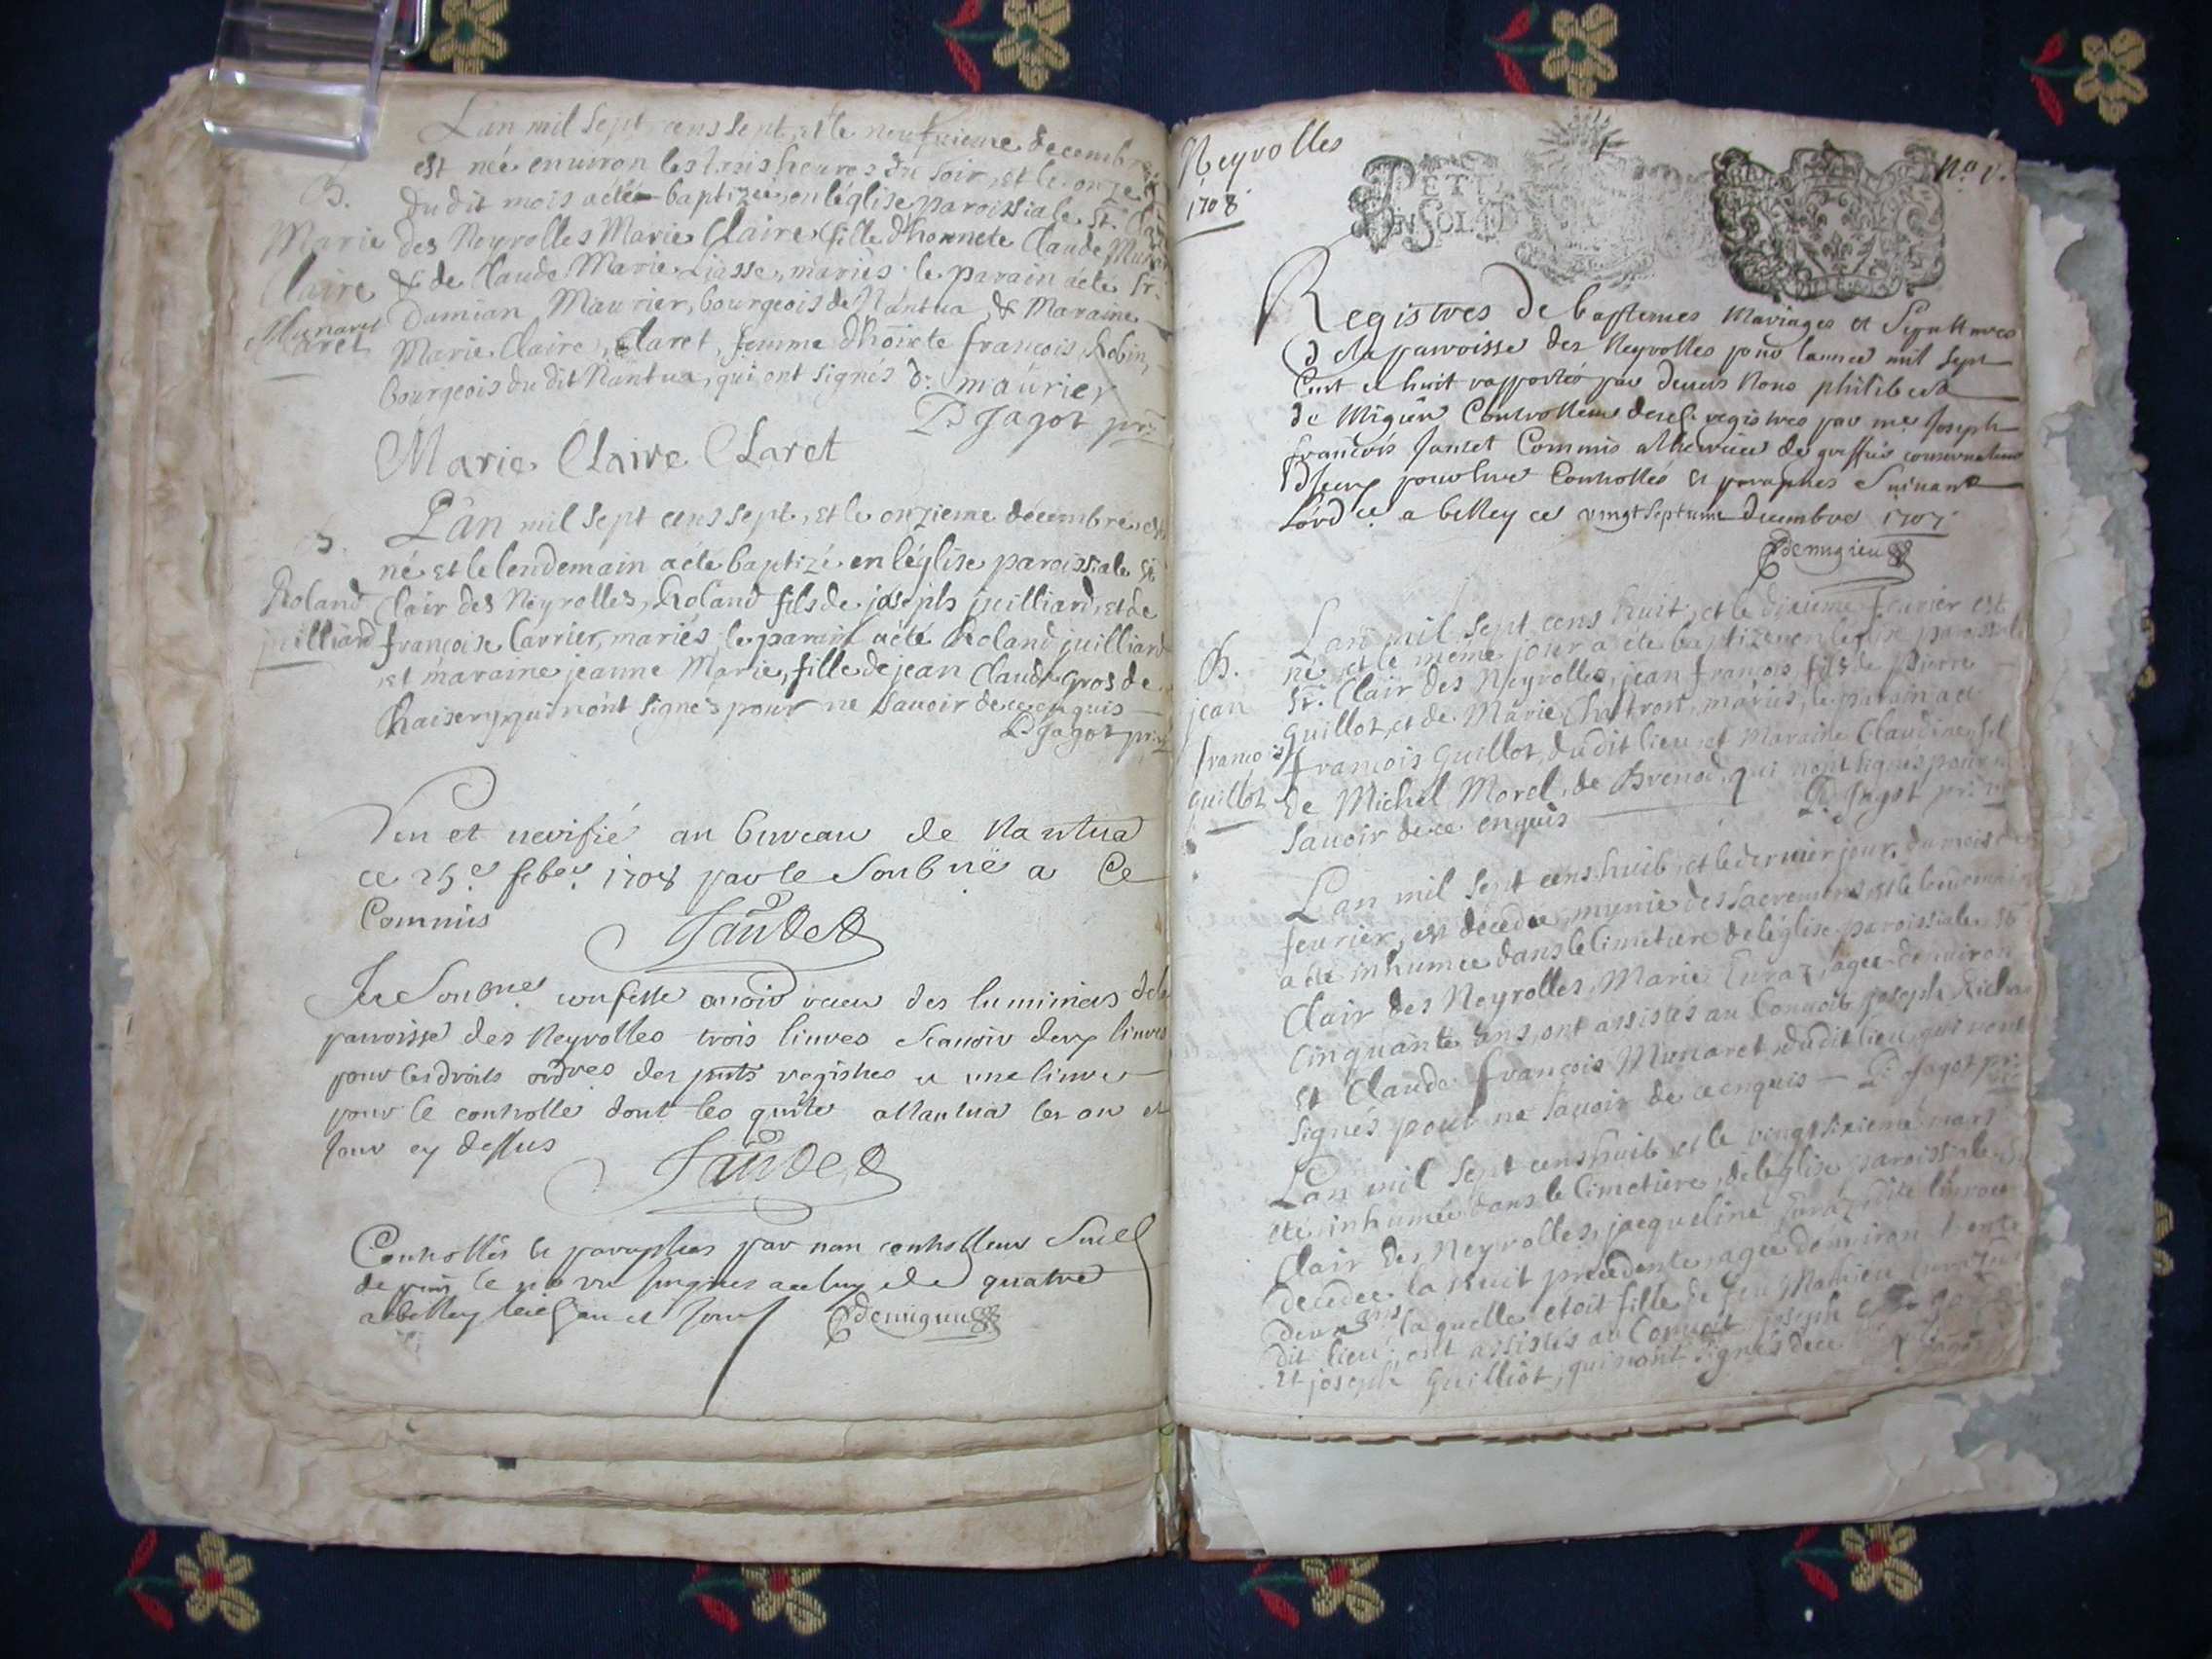 Lan mil sept cens sept, et le neufuieme decembre
est née enuiron les trois heures du soir, et le onze
B. du dit mois a été baptizée en léglise paroissiale St. Clair
Marie des Neyrolles Marie Claire fille dhonnete Claude
Claire & de Claude Marie Liasse, mariés: le parain a été Sr.
Munaret Damian Maurier, bourgeois de Nantua, & Maraine
Marie Claire, Claret, femme dhonete françois Robin,
bourgeois du dit Nantua, qui ont signés D. maurier
P. Jagot pr.
Marie Claire Claret
B. Lan mil sept cens sept, et le onzieme decembre est
né et le lendemain a été baptizé en léglise paroissiale St
Roland Clair des Neyrolles, Roland fils de joseph juilliard, et de
juilliard françoise Carrier, mariés, le parain a été Roland juilliard
et maraine jeanne Marie, fille de jean Claude Gros de
Chaisery, qui nont signés pour ne sauoir de ce enquis
P. Jagot pr.
Veu et verifié au bureau de Nantua
ce 25e feber. 1708 par le Soubné a Ce
Commis
Jantet
Je Soubné confesse auoir receu des luminiers de la
parroisse des Neyrolles trois liures Scauoir deux liures
pour les droits ordres des pnts registres et une liure
pour le controlle dont les quite a Nantua les an et
Jour cy dessus
Jantet
Controllés et paraphes par nous controlleur Sud.
de puis le no un jusques a celuy de quatre
a belley lesd. an et jour Demigieu
Neyrolles
1708
No. 1.
PETIT
EN SOLID
Registres de baptemes Mariages et Sepultures
de la parroisse des Neyrolles pour lannée mil sept
Cent et huit rapportés par deuers Nous philibert
de Migieu Controlleur desd. registres par me Joseph
françois Jantet Commis a lexercice de greffier conseruateur
Diceux pour estre Controllés et paraphes Suiuant
Lord.ce a belley ce vingt septieme decembre 1707
Demigieu
Lan mil sept cens huit, et le dixieme feurier est
B. né et le meme jour a été baptizé en léglise paroissiale
jean St. Clair des Neyrolles, jean françois fils de pierre
Guillot, et de Marie Chatron, mariés, le parain a été
françois françois Guillot, du dit lieu, et Maraine Claudine, fil
guillot de Michel Morel, de Brenod, qui nont signés pour ne
sauoir de ce enquis P. Jagot pr.
Lan mil sept cens huit, et le dernier jour du mois de
feurier, est decedée, munie des sacremens, et le lendemain
a été inhumée dans le Cimetiere de léglise paroissiale St
Clair des Neyrolles, Marie Euraz, agée denuiron
Cinquante ans, ont assistés au Conuoit joseph
et Claude françois Munaret, du dit lieu, qui nont
signés pour ne sauoir de ce enquis P. Jagot pr.
Lan mil sept cens huit, et le vingt sixieme mars
été inhumée dans le Cimetiere de léglise paroissiale
Clair des Neyrolles, jacqueline Euraz
decedée la nuit precedente, agée denuiron trente
deux ans, la quelle etoit fille de feu Mathieu Euraz du
dit lieu, ont assistés au Conuoit joseph
et joseph Guilliot, qui nont signés de ce